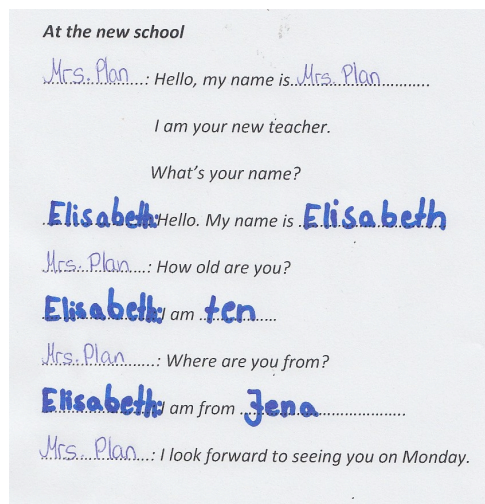 At the new school
Mrs. Plan: Hello, my name is Mrs. Plan
I am your new teacher.
What's your name?
Elisabeth: Hello. My name is Elisabeth
Mrs. Plan: How old are you?
Elisabeth: I am ten
Mrs. Plan: Where are you from?
Elisabeth: I am from Jena
Mrs. Plan: I look forward to seeing you on Monday.